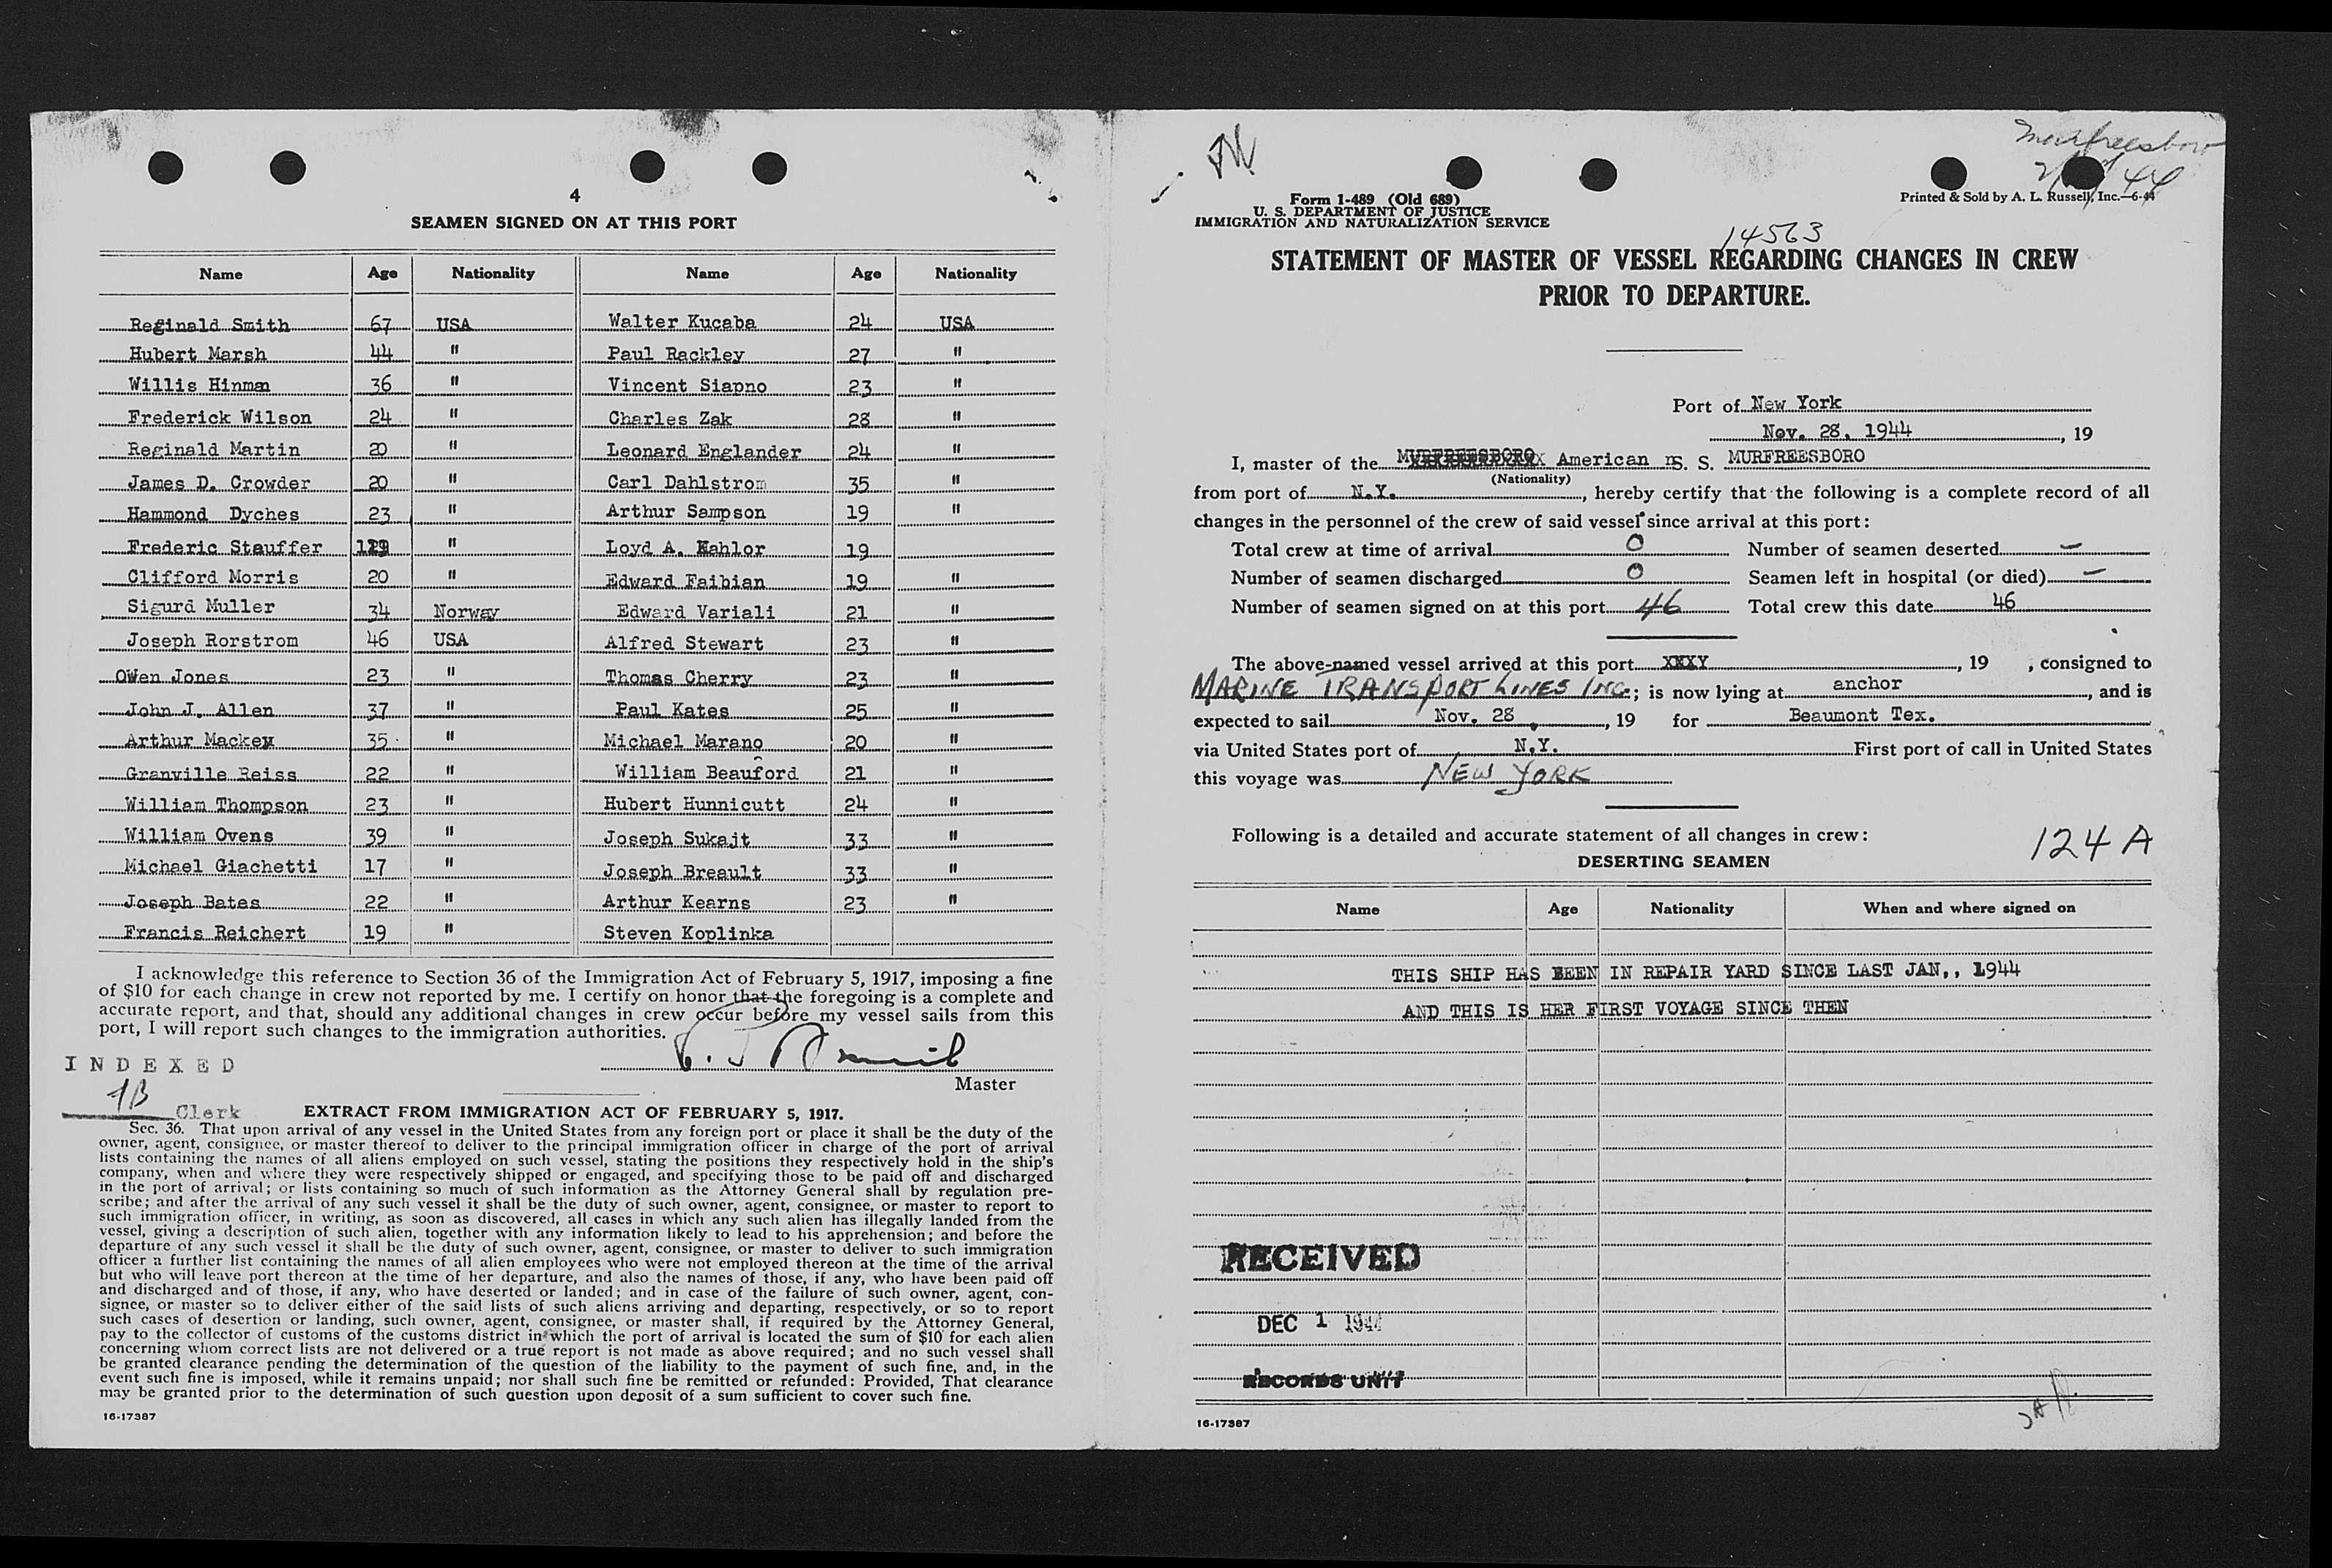 4
SEAMEN SIGNED ON AT THIS PORT
Name Age Nationality Name Age Nationality
Reginald Smith 67 USA Walter Kucaba 24 USA
Hubert Marsh 44 " Paul Rackley 27 "
Willis Hinman 36 " Vincent Siapno 23 "
Frederick Wilson 24 " Charles Zak 28 "
Reginald Martin 20 " Leonard Englander 24 "
James D. Crowder 20 " Carl Dahlstrom 35 "
Hammond Dyches 23 " Arthur Sampson 19 "
Frederic Stauffer " Loyd A. Kahlor 19
Clifford Morris 20 " Edward Faibian 19 "
Sigurd Muller 34 Norway Edward Variali 21 "
Joseph Rorstrom 46 USA Alfred Stewart 23 "
Owen Jones 23 " Thomas Cherry 23 "
John J. Allen 37 " Paul Kates 25 "
Arthur Mackey 35 " Michael Marano 20 "
Granville Reiss 22 " William Beauford 21 "
William Thompson 23 " Hubert Hunnicutt 24 "
William Ovens 39 " Joseph Sukajt 33 "
Michael Giachetti 17 " Joseph Breault 33 "
Joseph Bates 22 " Arthur Kearns 23 "
Francis Reichert 19 " Steven Koplinka
I acknowledge this reference to Section 36 of the Immigration Act of February 5, 1917, imposing a fine
of $10 for each change in crew not reported by me. I certify on honor that the foregoing is a complete and
accurate report, and that, should any additional changes in crew occur before my vessel sails from this
port, I will report such changes to the immigration authorities.
INDEXED
Master
Clerk
EXTRACT FROM IMMIGRATION ACT OF FEBRUARY 5, 1917.
Sec. 36. That upon arrival of any vessel in the United States from any foreign port or place it shall be the duty of the
owner, agent, consignee, or master thereof to deliver to the principal immigration officer in charge of the port of arrival
lists containing the names of all aliens employed on such vessel, stating the positions they respectively hold in the ship's
company, when and where they were respectively shipped or engaged, and specifying those to be paid off and discharged
in the port of arrival; or lists containing so much of such information as the Attorney General shall by regulation pre-
scribe; and after the arrival of any such vessel it shall be the duty of such owner, agent, consignee, or master to report to
such immigration officer, in writing, as soon as discovered, all cases in which any such alien has illegally landed from the
vessel, giving a description of such alien, together with any information likely to lead to his apprehension; and before the
departure of any such vessel it shall be the duty of such owner, agent, consignee, or master to deliver to such immigration
officer a further list containing the names of all alien employees who were not employed thereon at the time of the arrival
but who will leave port thereon at the time of her departure, and also the names of those, if any, who have been paid off
and discharged and of those, if any, who have deserted or landed; and in case of the failure of such owner, agent, con-
signee, or master so to deliver either of the said lists of such aliens arriving and departing, respectively, or so to report
such cases of desertion or landing, such owner, agent, consignee, or master shall, if required by the Attorney General,
pay to the collector of customs of the customs district in which the port of arrival is located the sum of $10 for each alien
concerning whom correct lists are not delivered or a true report is not made as above required; and no such vessel shall
be granted clearance pending the determination of the question of the liability to the payment of such fine, and, in the
event such fine is imposed, while it remains unpaid; nor shall such fine be remitted or refunded: Provided, That clearance
may be granted prior to the determination of such question upon deposit of a sum sufficient to cover such fine.
16-17387
Murfreesboro
Form 1-489 (Old 689)
U. S. DEPARTMENT OF JUSTICE
IMMIGRATION AND NATURALIZATION SERVICE
Printed & Sold by A. L. Russell, Inc.—6-44
14563
STATEMENT OF MASTER OF VESSEL REGARDING CHANGES IN CREW
PRIOR TO DEPARTURE.
Port of New York
Nov. 28, 1944, 19
I, master of the American S. S. MURFREESBORO
(Nationality)
from port of N.Y., hereby certify that the following is a complete record of all
changes in the personnel of the crew of said vessel since arrival at this port:
Total crew at time of arrival 0 Number of seamen deserted —
Number of seamen discharged 0 Seamen left in hospital (or died) —
Number of seamen signed on at this port 46 Total crew this date 46
The above-named vessel arrived at this port XXXY, 19 , consigned to
MARINE TRANSPORT LINES INC.; is now lying at anchor, and is
expected to sail Nov. 28, 19 for Beaumont Tex.
via United States port of N.Y. First port of call in United States
this voyage was NEW YORK
Following is a detailed and accurate statement of all changes in crew:
124 A
DESERTING SEAMEN
Name Age Nationality When and where signed on
THIS SHIP HAS BEEN IN REPAIR YARD SINCE LAST JAN,, 1944
AND THIS IS HER FIRST VOYAGE SINCE THEN
RECEIVED
DEC 1 1944
RECORDS UNIT
16-17387